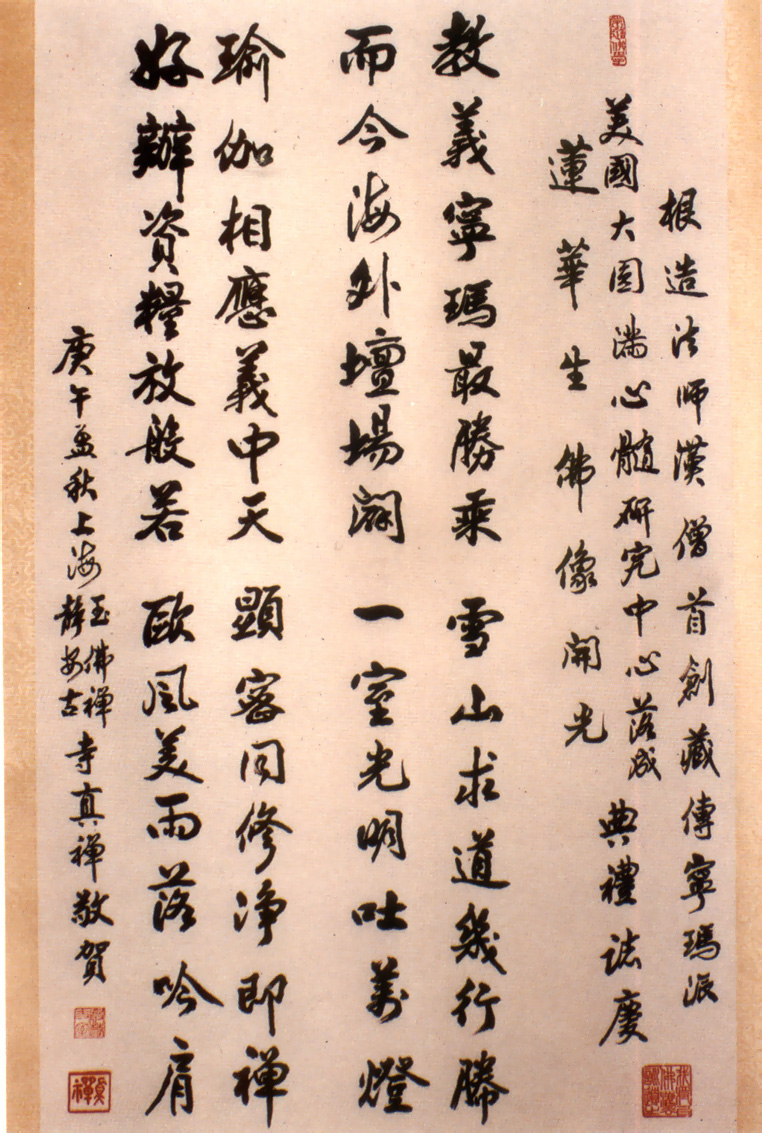 根造法師漢僧首創藏傳寧瑪派
美國大圆满心髓研究中心落成
蓮華生佛像開光
典禮誌慶
教義寧瑪最勝乘 雪山求道幾行勝
而今海外壇場闢 一室光明吐萬燈
瑜伽相應義中天 顯密同修淨即禪
好辦資糧放般若 歐風美雨落吟肩
庚午孟秋上海玉佛禪靜安古寺真禪敬賀
真禪